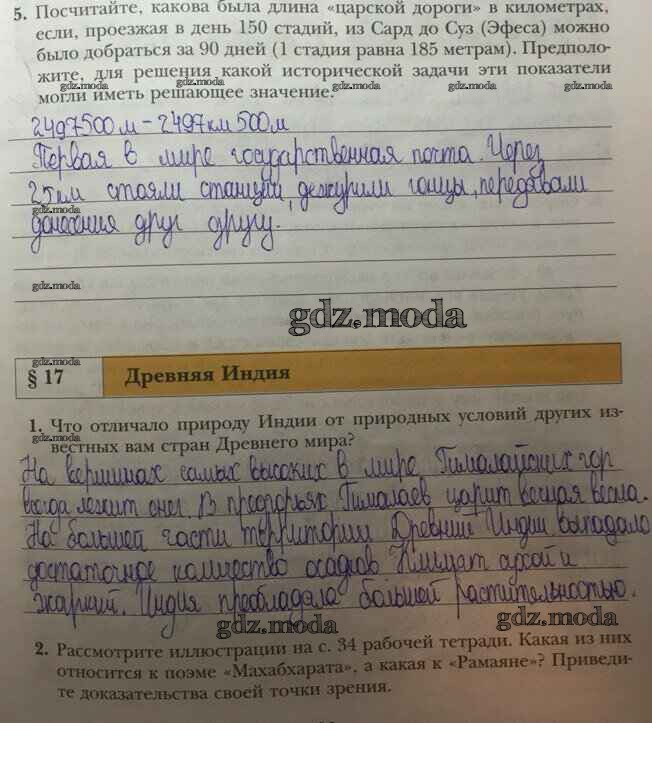 5. Посчитайте, какова была длина «царской дороги» в километрах,
если, проезжая в день 150 стадий, из Сард до Суз (Эфеса) можно
было добраться за 90 дней (1 стадия равна 185 метрам). Предполо-
жите, для решения какой исторической задачи эти показатели
gdz.moda gdz.moda gdz.moda gdz.moda
могли иметь решающее значение.
2497500м – 2497км 500м
Первая в мире государственная почта. Через
25км стояли станции, дежурили гонцы, передавали
gdz.moda
донесения друг другу.
gdz.moda
gdz.moda
gdz.moda
§ 17 Древняя Индия
1. Что отличало природу Индии от природных условий других из-
gdz.moda
вестных вам стран Древнего мира?
На вершинах самых высоких в мире Гималайских гор
всегда лежит снег. В предгорьях Гималаев царит вечная весна.
На большей части территории Древней Индии выпадало
достаточное количество осадков Климат сухой и
жаркий. Индия преобладала большей растительностью.
gdz.moda gdz.moda
2. Рассмотрите иллюстрации на с. 34 рабочей тетради. Какая из них
относится к поэме «Махабхарата», а какая к «Рамаяне»? Приведи-
те доказательства своей точки зрения.